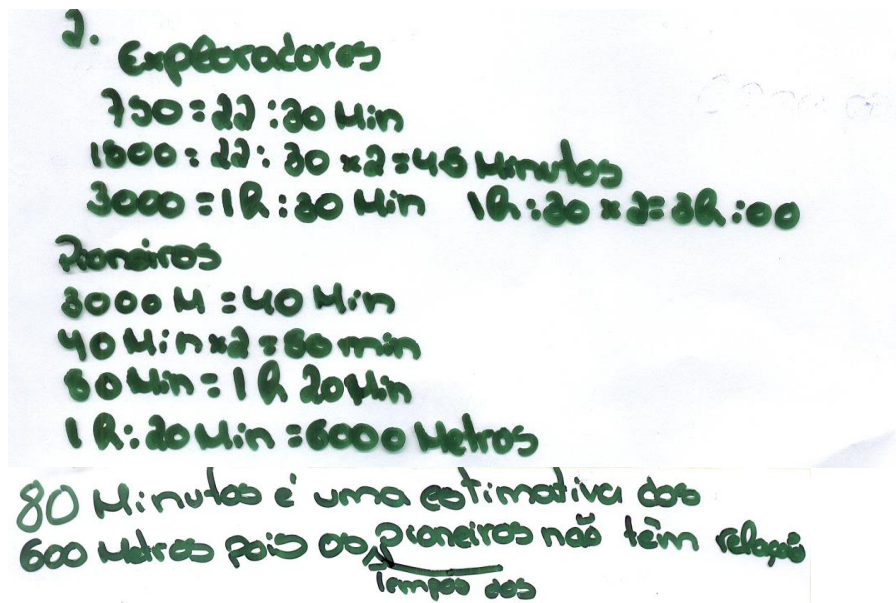 2.
Exploradores
750 = 22:30 Min
1500 = 22:30 x 2 = 45 Minutos
3000 = 1h:30 Min 1h:30 x 2 = 3h:00
Pioneiros
3000 M = 40 Min
40 Min x 2 = 80 min
80 Min = 1h 20 Min
1h:20 Min = 6000 Metros
80 Minutos é uma estimativa dos
600 Metros pois os pioneiros não têm relação
tempos dos